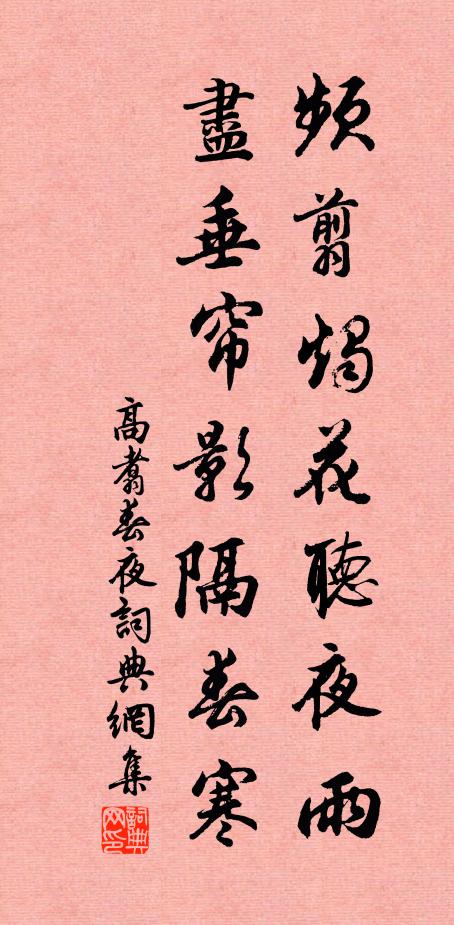 頻翦燭花聽夜雨
盡垂帘影隔春寒
高翥春夜詞典網集
詞典網印